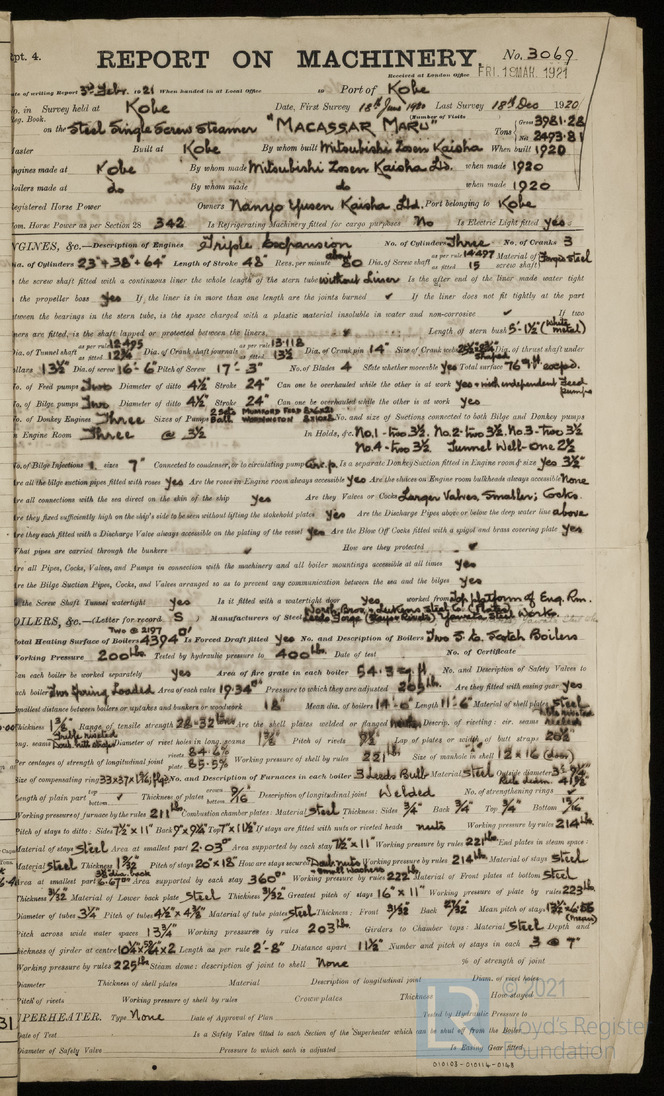 pt. 4.
REPORT ON MACHINERY.
No. 3069
Received at London Office FRI. 18 MAR. 1921
of writing Report 3rd Febr. 1921 When handed in at Local Office Port of Kobe
in Survey held at Kobe Date, First Survey 18th June 1920 Last Survey 18th Dec 1920
Book. (Number of Visits
on the Steel Single Screw Steamer "MACASSAR MARU" Tons Gross 3981.28 Net 2493.81
Built at Kobe By whom built Mitsubishi Zosen Kaisha When built 1920
made at Kobe By whom made Mitsubishi Zosen Kaisha Ltd. when made 1920
made at do By whom made do when made 1920
Registered Horse Power Owners Nanyo Yusen Kaisha, Ltd. Port belonging to Kobe
Horse Power as per Section 28 342 Is Refrigerating Machinery fitted for cargo purposes No Is Electric Light fitted yes
GINES, &c.—Description of Engines Triple Expansion No. of Cylinders Three No. of Cranks 3
of Cylinders 23" + 38" + 64" Length of Stroke 48" Revs. per minute 80 Dia. of Screw shaft as per rule 14.497 as fitted 15 Material of screw shaft Steel
the screw shaft fitted with a continuous liner the whole length of the stern tube without liner Is the after end of the liner made water tight
the propeller boss yes If the liner is in more than one length are the joints burned ✓ If the liner does not fit tightly at the part
between the bearings in the stern tube, is the space charged with a plastic material insoluble in water and non-corrosive ✓ If two
liners are fitted, is the shaft lapped or protected between the liners, Length of stern bush 5'-1½" (White metal)
Dia. of Tunnel shaft as per rule 12.495 as fitted 12¾ Dia. of Crank shaft journals as per rule 13.118 as fitted 13½ Dia. of Crank pin 14" Size of Crank webs Dia. of thrust shaft under
collars 13½ Dia. of screw 16'-6" Pitch of Screw 17'-3" No. of Blades 4 State whether moveable yes Total surface 76
No. of Feed pumps Two Diameter of ditto 4½" Stroke 24" Can one be overhauled while the other is at work yes + with independent feed pumps
No. of Bilge pumps Two Diameter of ditto 4½" Stroke 24" Can one be overhauled while the other is at work yes
No. of Donkey Engines Three Sizes of Pumps No. and size of Suctions connected to both Bilge and Donkey pumps
In Engine Room Three @ 3½ In Holds, &c. No.1 - two 3½, No.2 - two 3½, No.3 - two 3½
No.4 - two 3½ Tunnel Well - One 2½
No. of Bilge Injections 1 sizes 7" Connected to condenser, or to circulating pump Circ. p. Is a separate Donkey Suction fitted in Engine room & size yes 3½"
Are all the bilge suction pipes fitted with roses yes Are the roses in Engine room always accessible yes Are the sluices on Engine room bulkheads always accessible None
Are all connections with the sea direct on the skin of the ship yes Are they Valves or Cocks Larger Valves, Smaller; Cocks.
Are they fixed sufficiently high on the ship's side to be seen without lifting the stokehold plates yes Are the Discharge Pipes above or below the deep water line above
Are they each fitted with a Discharge Valve always accessible on the plating of the vessel yes Are the Blow Off Cocks fitted with a spigot and brass covering plate yes
What pipes are carried through the bunkers ✓ How are they protected ✓
Are all Pipes, Cocks, Valves, and Pumps in connection with the machinery and all boiler mountings accessible at all times yes
Are the Bilge Suction Pipes, Cocks, and Valves arranged so as to prevent any communication between the sea and the bilges yes
Is the Screw Shaft Tunnel watertight yes Is it fitted with a watertight door yes worked from Top Platform of Eng. Rm.
OILERS, &c.—(Letter for record S ) Manufacturers of Steel
Total Heating Surface of Boilers 4394 Is Forced Draft fitted yes No. and Description of Boilers Two S.E. Scotch Boilers
Working Pressure 200 lbs Tested by hydraulic pressure to 400 lbs Date of test No. of Certificate
Can each boiler be worked separately yes Area of fire grate in each boiler 54.3 sq.ft No. and Description of Safety Valves to
each boiler Two Spring Loaded Area of each valve 19.34 Pressure to which they are adjusted 205 lbs Are they fitted with easing gear yes
Smallest distance between boilers or uptakes and bunkers or woodwork 18" Mean dia. of boilers 14'-6" Length 11'-6" Material of shell plates Steel
Thickness 1⅜" Range of tensile strength 28-32 tons Are the shell plates welded or flanged Descrip. of riveting: cir. seams
long. seams Diameter of rivet holes in long. seams Pitch of rivets Lap of plates or width of butt straps 20½"
Per centages of strength of longitudinal joint rivets 84.6% plate 85.5% Working pressure of shell by rules 221 lbs Size of manhole in shell 12 × 16
Size of compensating ring No. and Description of Furnaces in each boiler 3 Leeds Bulb Material Steel Outside diameter
Length of plain part top bottom ✓ Thickness of plates crown bottom 9/16 Description of longitudinal joint Welded No. of strengthening rings ✓
Working pressure of furnace by the rules 211 lbs Combustion chamber plates: Material Steel Thickness: Sides ¾" Back ¾" Top ¾" Bottom
Pitch of stays to ditto: Sides 7½" × 11" Back Top If stays are fitted with nuts or riveted heads nuts Working pressure by rules 214 lbs
Material of stays Steel Area at smallest part 2.03 Area supported by each stay 7½" × 11" Working pressure by rules 221 lbs End plates in steam space:
Material Steel Thickness 1 3/32 Pitch of stays 20" × 18" How are stays secured Working pressure by rules 214 lbs Material of stays Steel
Area at smallest part 6.67 Area supported by each stay 360 Working pressure by rules 222 lbs Material of Front plates at bottom Steel
Thickness Material of Lower back plate Steel Thickness Greatest pitch of stays 16" × 11" Working pressure of plate by rules 223 lbs
Diameter of tubes 3¼" Pitch of tubes 4½" × 4⅜" Material of tube plates Steel Thickness: Front 31/32 Back Mean pitch of stays
Pitch across wide water spaces 13¾" Working pressures by rules 203 lbs Girders to Chamber tops: Material Steel Depth and
thickness of girder at centre Length as per rule 2'-8" Distance apart 11½" Number and pitch of stays in each 3 @ 7"
Working pressure by rules 225 lbs Steam dome: description of joint to shell None % of strength of joint
Diameter Thickness of shell plates Material Description of longitudinal joint Diam. of rivet holes
Pitch of rivets Working pressure of shell by rules Crown plates Thickness How stayed
UPERHEATER. Type None Date of Approval of Plan Tested by Hydraulic Pressure to
Date of Test Is a Safety Valve fitted to each Section of the Superheater which can be shut off from the Boiler
Diameter of Safety Valve Pressure to which each is adjusted Is Easing Gear fitted
© 2021
Lloyd's Register
Foundation
010103-010114-0148